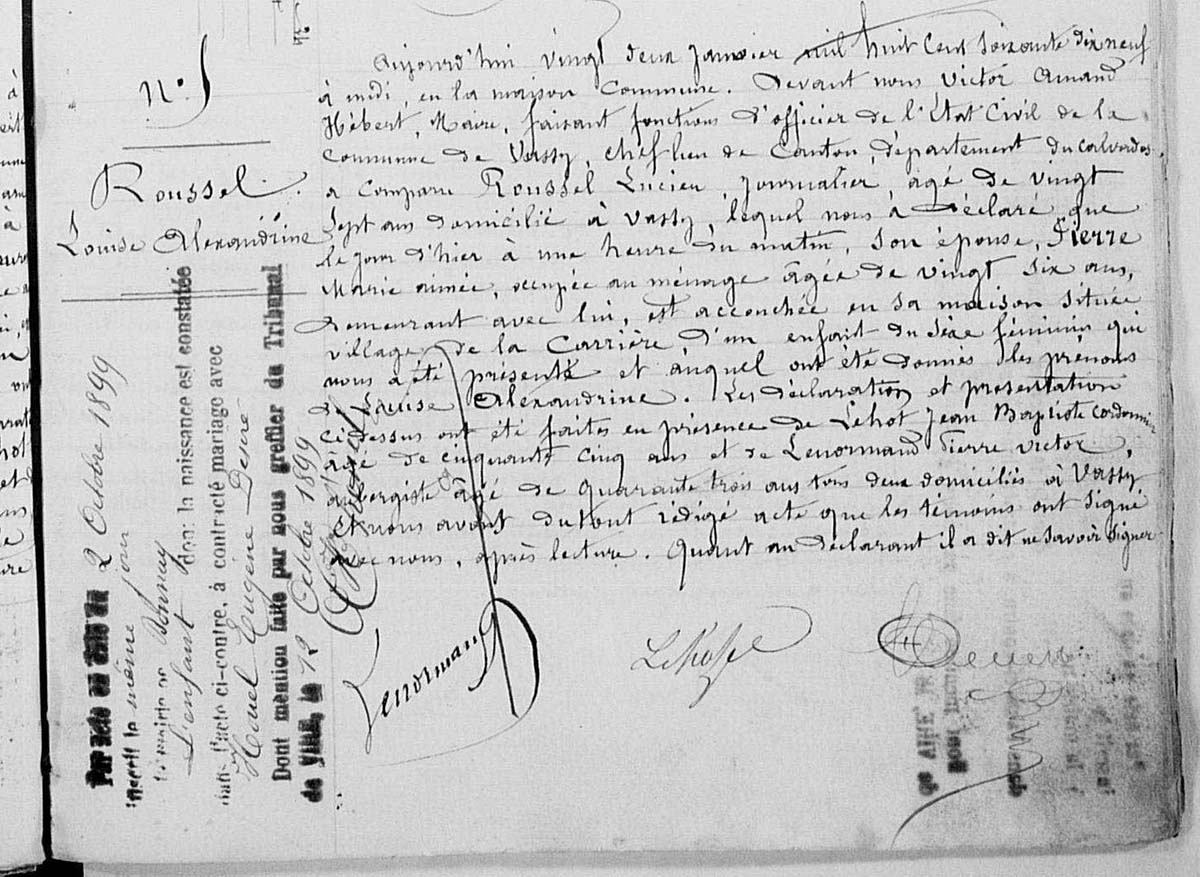 n° 5
Roussel
Louise Alexandrine
Aujourd'hui vingt deux janvier mil huit cent soixante dix neuf
à midi, en la maison Commune. Devant nous Victor Amand
Hébert, Maire, faisant fonctions d'officier de l'Etat Civil de la
Commune de Vassy, chef lieu de Canton, département du Calvados
a comparu Roussel Lucien, journalier, âgé de vingt
Sept ans domicilié à Vassy, lequel nous à déclaré que
le jour d'hier à une heure du matin, son épouse, Pierre
Marie aimée, occupée au ménage âgée de vingt six ans,
demeurant avec lui, est accouchée en sa maison située
village de la Carrière d'un enfant du sèxe féminin qui
nous a été présenté et auquel ont été donnés les prénoms
de Louise Alexandrine. Les déclaration et présentation
ci dessus ont été faites en présence de Lehot Jean Baptiste cordonnier
âgé de cinquante cinq ans et de Lenormand Pierre victor,
aubergiste âgé de quarante trois ans tous deux domiciliés à Vassy
et nous avons du tout rédigé acte que les témoins ont signé
avec nous, après lecture. Quant au déclarant il a dit ne savoir signer
Lenormand
Par acte en date du 2 Octobre 1899
inscrit le même jour
à la mairie de
L'enfant dont la naissance est constatée
dans l'acte ci-contre, à contricté mariage avec
Huel Eugène Désiré
Dont mention faite par nous greffier du Tribunal
de VIRE, le 12 Octobre 1899